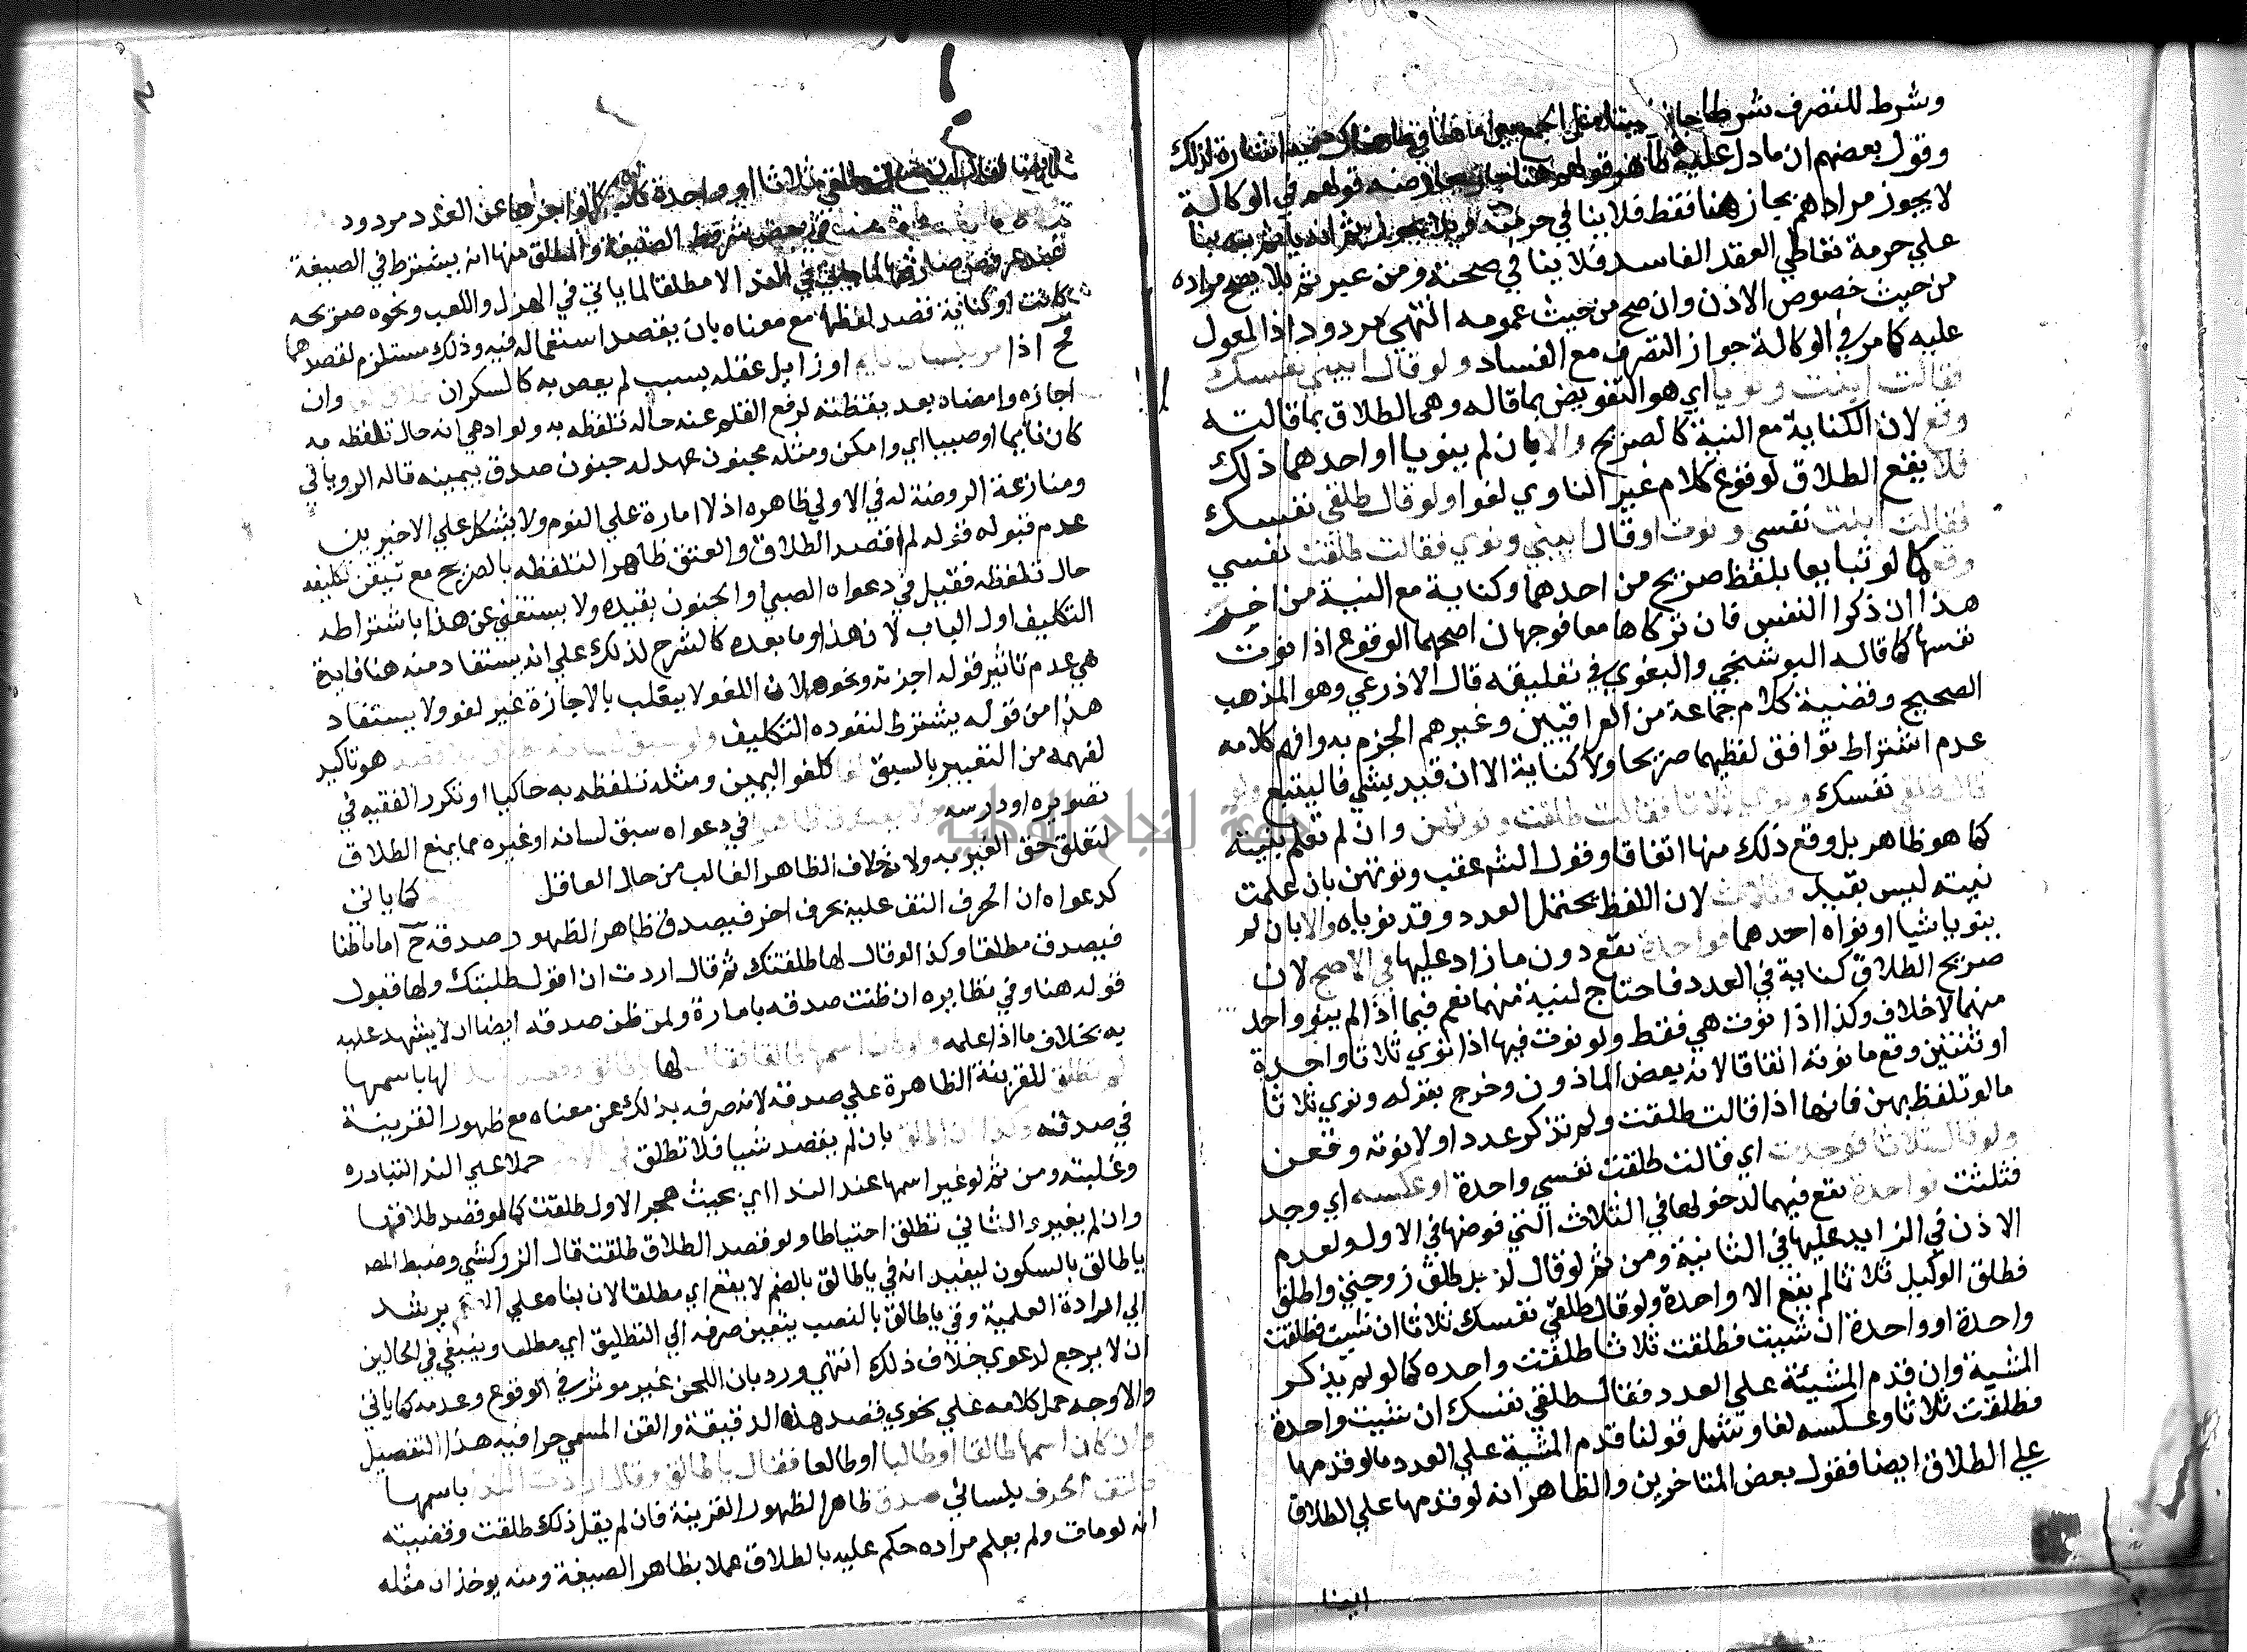 وشرط للتصرف شرطا جاز بناء على الجمع بين ما هنا
وقول بعضهم ان ما دل عليه ظاهر قولهم هنا قولهم في الوكالة
لا يجوز مرادهم بجاز هنا فقط فلا ينافي حرمته
علي حرمة تعاطي العقد الفاسد فلا ينافي صحته ومن عبر ثم بلا يصح مراده
من حيث خصوص الاذن وان صح من حيث عمومه انتهي مردود اذ المعول
عليه كما مر في الوكالة جواز التصرف مع الفساد ولو قال ابيني نفسك
فقالت ابنت ونويا اي هو التفويض بما قاله وهي الطلاق بما قالته
وقع لان الكناية مع النية كالصريح والا بان لم ينويا او احدهما ذلك
فلا يقع الطلاق لوقوع كلام غير الناوي لغوا ولو قال طلقي نفسك
فقالت ابنت نفسي ونوت او قال ابيني ونوي فقالت طلقت نفسي
وقع كما لو تبايعا بلفظ صريح من احدهما وكناية مع النية من اخر
هذا ان ذكرا النفس فان تركاها معا فوجهان اصحهما الوقوع اذا نوت
نفسها كما قاله البوشنجي والبغوي في تعليقه قال الاذرعي وهو المذهب
الصحيح وقضية كلام جماعة من العراقيين وغيرهم الجزم به وافهم كلامه
عدم اشتراط توافق لفظيهما صريحا ولا كناية الا ان قيد بشي فاليتبع ولو
قال طلقي نفسك ونوي ثلاثا فقالت طلقت ونوتهن وان لم تعلم بنيته
كما هو ظاهر بل وقع ذلك منها اتفاقا وقول الشر عقب ونوتهن بان علمت
نيته ليس بقيد فثلاث لان اللفظ يحتمل العدد وقد نوياه والا بان لم
ينويا شيا او نواه احدهما فواحدة تقع دون ما زاد عليها في الاصح لان
صريح الطلاق كناية في العدد فاحتاج لنية منهما نعم فيما اذا لم ينو واحد
منهما لا خلاف وكذا اذا نوت هي فقط ولو نوت فيها اذا نوي ثلاثا واحدة
او ثنتين وقع ما نوته اتفاقا لانه بعض الماذون وخرج بقوله ونوي ثلاثا
ما لو تلفظ بهن فانها اذا قالت طلقت ولم تذكر عددا ولا نوته وقعن
ولو قال ثلاثا فوحدت اي قالت طلقت نفسي واحدة او عكسه اي وحد
فثلثت فواحدة تقع فيهما لدخولها في الثلاث التي فوضها في الاولي ولعدم
الاذن في الزايد عليها في الثانية ومن ثم لو قال لزيد طلق زوجتي واطلق
فطلق الوكيل ثلاثا لم يقع الا واحدة ولو قال طلقي نفسك ثلاثا ان شيت فطلقت
واحدة او واحدة ان شيت فطلقت ثلاثا طلقت واحده كما لو لم يذكر
المشية وان قدم المشيئة علي العدد فقال طلقي نفسك ان شيت واحدة
فطلقت ثلاثا وعكسه لغا وشمل قولنا قدم المشية علي العدد ما لو قدمها
علي الطلاق ايضا فقول بعض المتاخرين والظاهر انه لو قدمها علي الطلاق
ايضا
ثلاثا او واحدة كانه كما لو اخرها عن العدد مردود
في بعض شروط الصيغة والمطلق منها انه يشترط في الصيغة
كانت او كناية قصد لفظها مع معناه بان يقصد استعماله فيه وذلك مستلزم لقصدهما
اذا مر بلسان نايم او زايل عقله بسبب لم يعص به كالسكران وان
اجازه وامضاه بعد يقظته لرفع القلم عنه حالة تلفظه به ولو ادعي انه حال تلفظه به
كان نايما او صبيا اي وامكن ومثله مجنون عهد له جنون صدق بيمينه قاله الروياني
ومنازعة الروضة له في الاولي ظاهره اذ لا امارة علي النوم ولا يشكل علي الاخيرين
عدم قبوله قوله لم اقصد الطلاق والعتق ظاهرا لتلفظه بالصريح مع تيقن تكليفه
حال تلفظه فقبل في دعواه الصبي او الجنون بقيده ولا يستغني عن هذا باشتراطه
التكليف اول الباب لان هذا وما بعده كالشرح لذلك علي انه يستفاد منه هنا فايدة
هي عدم تاثير قوله اجزته ونحوه لان اللغو لا ينقلب بالاجازة غير لغو ولا يستفاد
هذا من قوله يشترط لنفوذه التكليف ولو سبق لسانه بطلاق بلا قصد هو تاكيد
لفهمه من التعبير بالسبق لغا كلغو اليمين ومثله تلفظه به حاكيا او تكرر الفقيه في
تصويره او درسه ولا يصدق ظاهرا في دعواه سبق لسانه او غيره مما يمنع الطلاق
لتعلق حق الغير به ولانه خلاف الظاهر الغالب من حال العاقل كما ياتي
كدعواه ان الحرف التف عليه بحرف اخر فيصدق ظاهرا لظهور صدقه ح اما باطنا
فيصدق مطلقا وكذا لو قال لها طلقتك ثم قال اردت ان اقول طلبتك ولها قبول
قوله هنا وفي نظايره ان ظنت صدقه بامارة ولمن ظن صدقه ايضا ان لا يشهد عليه
به بخلاف ما اذا علمه ولو كان اسمها طالقا فقال لها يا طالق وقصد الندا لها باسمها
لم تطلق للقرينة الظاهرة علي صدقه لانه صرفه بذلك عن معناه مع ظهور القرينة
في صدقه وكذا ان اطلق بان لم يقصد شيا فلا تطلق في الاصح حملا علي الندا لتبادره
وغلبته ومن ثم لو غير اسمها عند الندا اي بحيث هجر الاول طلقت كما لو قصد طلاقها
وان لم يغيره الثاني تطلق احتياطا ولو قصد الطلاق طلقت قال الزركشي وضبط المصـ
يا طالق بالسكون ليفيد انه في يا طالق بالضم لا يقع اي مطلقا لان بناه علي الضم يرشد
الي ارادة العلمية وفي يا طالقا بالنصب يتعين صرفه الي التطليق اي مطلقا وينبغي في الحالين
ان لا يرجع لدعوي خلاف ذلك انتهي ورد بان اللحن غير موثر في الوقوع وعدمه كما ياتي
والاوجه حمل كلامه علي نحوي قصد هذه الدقيقة والقن المسمي حرا فيه هذا التفصيل
وان كان اسمها طالقا او طالبا او طالعا فقال يا طالق وقال اردت الندا باسمها
فالتف الحرف بلساني صدق ظاهرا لظهور القرينة فان لم يقل ذلك طلقت وقضيته
انه لو مات ولم يعلم مراده حكم عليه بالطلاق عملا بظاهر الصيغة ومنه يوخذ ان مثله
جامعة النجاح الوطنية